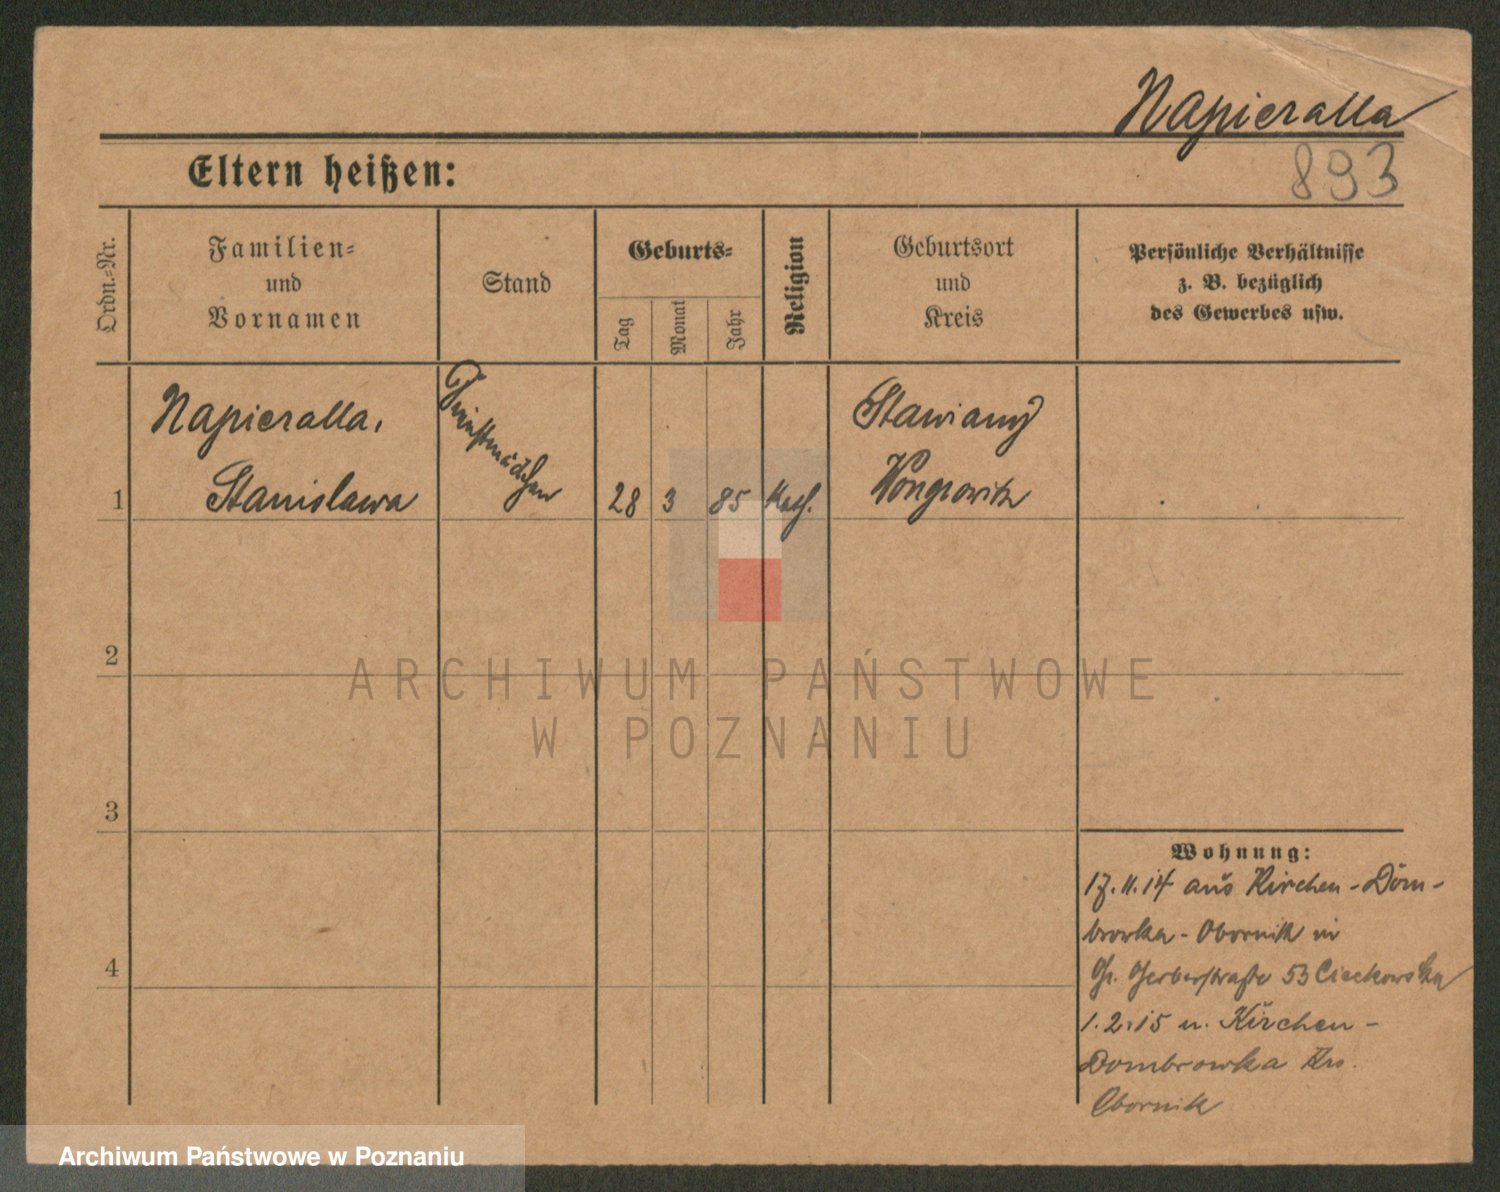 Napieralla
893
Eltern heißen:
Ordn.-Nr.
Familien-
und
Vornamen
Stand
Geburts-
Tag
Monat
Jahr
Religion
Geburtsort
und
Kreis
Persönliche Verhältnisse
z. B. bezüglich
des Gewerbes usw.
1
Napieralla,
Stanislawa
Dienstmädchen
28
3
85
Kath.
Stawiany
Wongrowitz
2
3
4
Wohnung:
17.11.14 aus Kirchen-Dom-
browka - Obornik in
Gr. Gerberstraße 53 Cieckowska
1.2.15 n. Kirchen-
Dombrowka Krs.
Obornik
ARCHIWUM PAŃSTWOWE
W POZNANIU
Archiwum Państwowe w Poznaniu